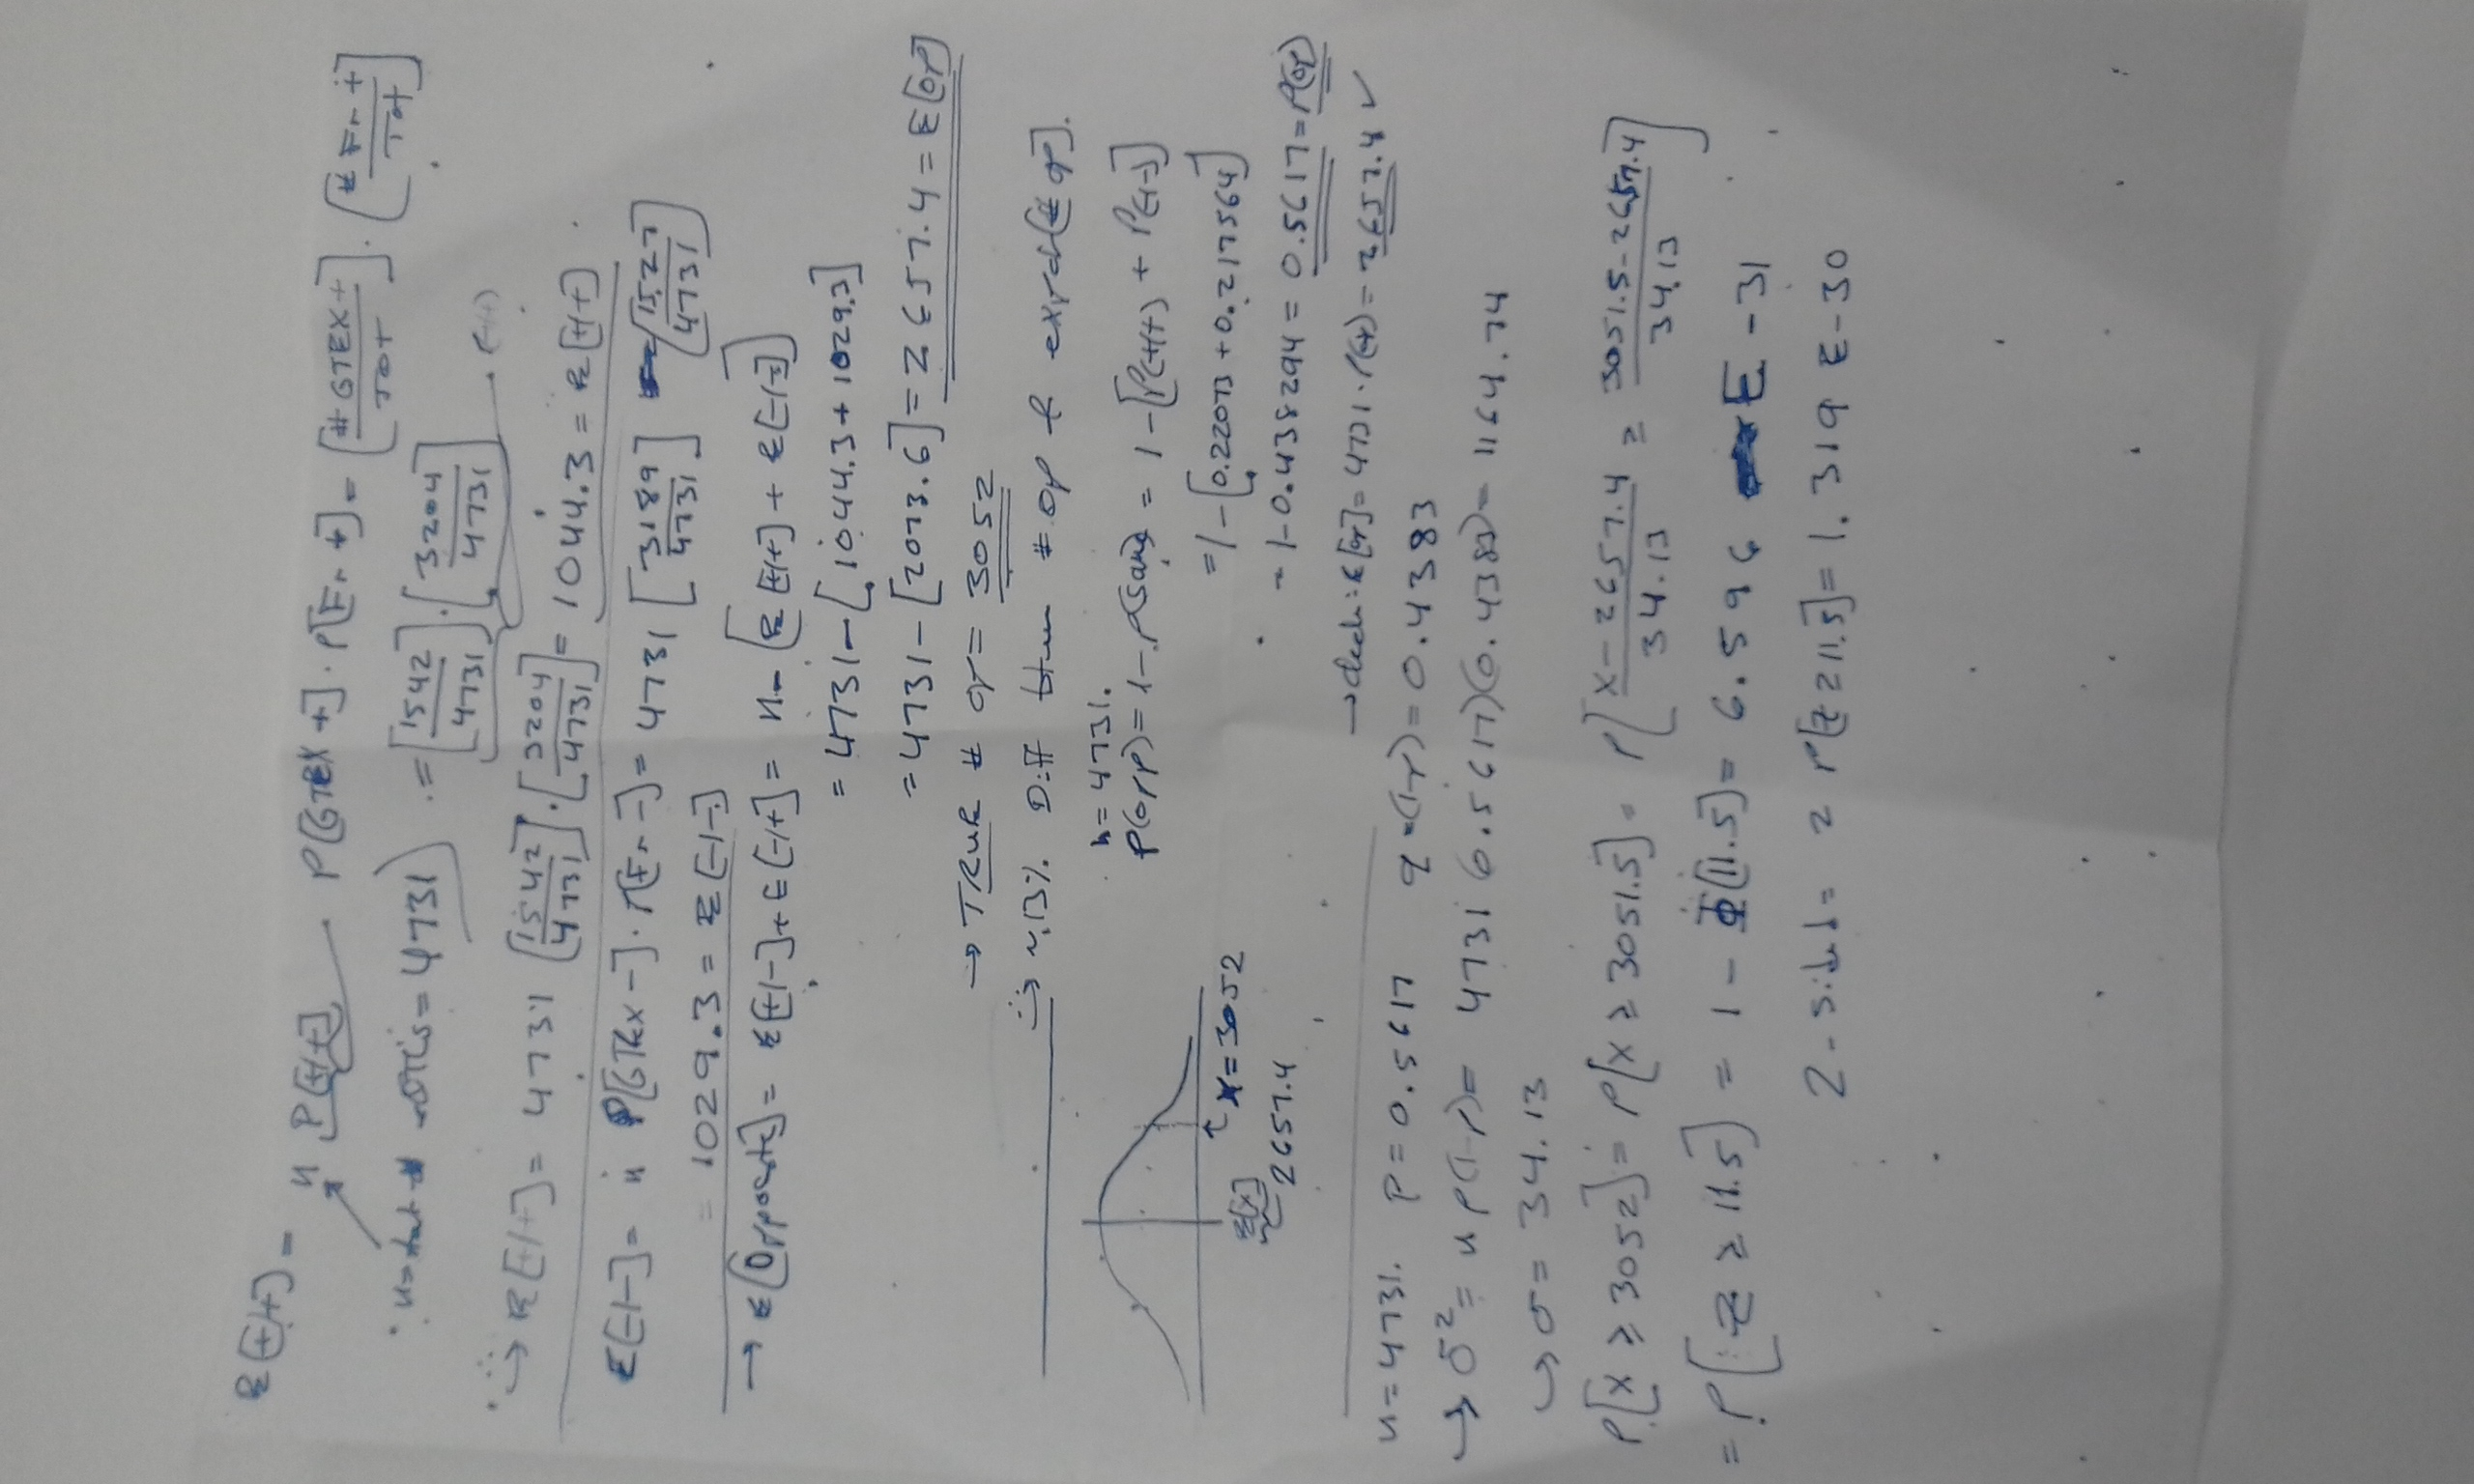 E[+/+] = n P[+/+] → P[GTEX +] . P[Fr +] = [# GTEX + / TOT] . [# Fr + / TOT]
n = tot # = 4731 . = [1542 / 4731] . [3204 / 4731]
∴ → E[+/+] = 4731 [1542 / 4731] . [3204 / 4731] = 1044.3 = E[+/+]
E[-/-] = n P[GTEx -] . P[Fr -] = 4731 [3189 / 4731] [1527 / 4731]
= 1029.3 = E[-/-]
→ E[Opposite] = E[+/-] + E[-/+] = n - [E[+/+] + E[-/-]]
= 4731 - [1044.3 + 1029.3]
= 4731 - [2073.6] = 2657.4 = E[op]
→ TRUE # op = 3052
∴ → Diff btwn # op & expected [# op].
n = 4731.
P(opp) = 1 - P(Same) = 1 - [P(+/+) + P(-/-)]
= 1 - [0.22073 + 0.217564]
= 1 - 0.438294 = 0.5617 = P(op)
→ check: E[op] = 4731 . P(op) = 2657.4 ✓
E[x] 2657.4 ↑ x = 3052
n = 4731. P = 0.5617 q = (1-P) = 0.4383
→ σ² = n P(1-P) = 4731 (0.5617)(0.4383) = 1164.74
→ σ = 34.13
P[X ≥ 3052] = P[X ≥ 3051.5] = P[X - 2657.4 / 34.13 ≥ 3051.5 - 2657.4 / 34.13]
= P[Z ≥ 11.5] = 1 - Φ(11.5) = 6.596 E - 31
2 - sided = 2 P[Z ≥ 11.5] = 1.319 E - 30